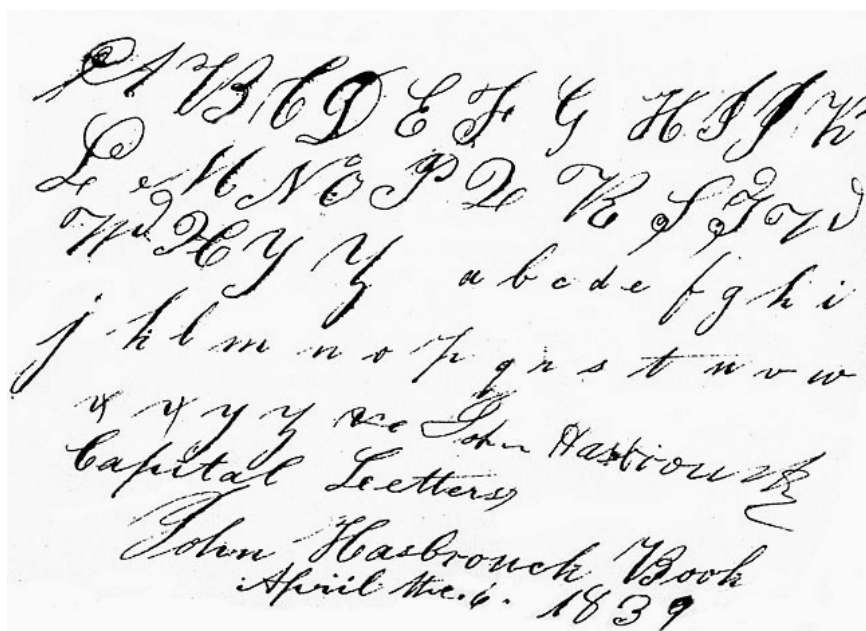 A B C D E F G H I J K
L M N O P Q R S T V
W X Y Z a b c d e f g h i
j k l m n o p q r s t u v w
x x y z &c John Hasbrouck
Capital Letters
John Hasbrouck Book
April the. 6. 1839